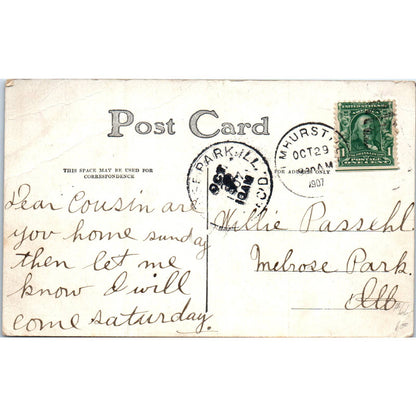 Post Card
THIS SPACE MAY BE USED FOR
CORRESPONDENCE
PARK, ILL.
OCT
10 AM
REC'D.
MHURST,
OCT 29
AM
1907
FOR ADDRESS ONLY
Dear Cousin are
you home sunday
then let me
know I will
come saturday.
Willie Passehl
Melrose Park
Ill